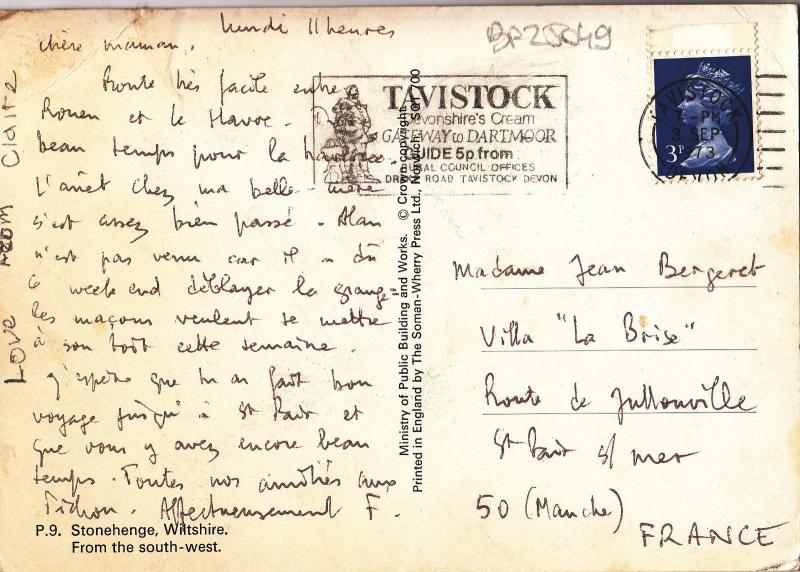 lundi 11 heures
chère maman,
Route très facile entre
Rouen et le Havre.
beau temps pour la traversée.
L'arrêt chez ma belle-mère
s'est assez bien passé. Alan
n'est pas venu car il a dû
ce week end déblayer la grange =
les maçons veulent se mettre
à son toit cette semaine.
J'espère que tu as fait bon
voyage jusqu'à St Pair et
que vous y avez encore beau
temps. Toutes nos amitiés aux
Tichon. Affectueusement F.
LOVE FROM Claire
P.9. Stonehenge, Wiltshire.
From the south-west.
Ministry of Public Building and Works. © Crown copyright
Printed in England by The Soman-Wherry Press Ltd., Norwich.
TAVISTOCK
Devonshire's Cream
GATEWAY to DARTMOOR
GUIDE 5p from
RURAL COUNCIL OFFICES
DRAKE ROAD TAVISTOCK DEVON
TAVISTOCK
7 - PM
3 SEP
1973
DEVON
3P
Madame Jean Bergeret
Villa "La Brise"
Route de Jullouville
St Pair s/ mer
50 (Manche)
FRANCE